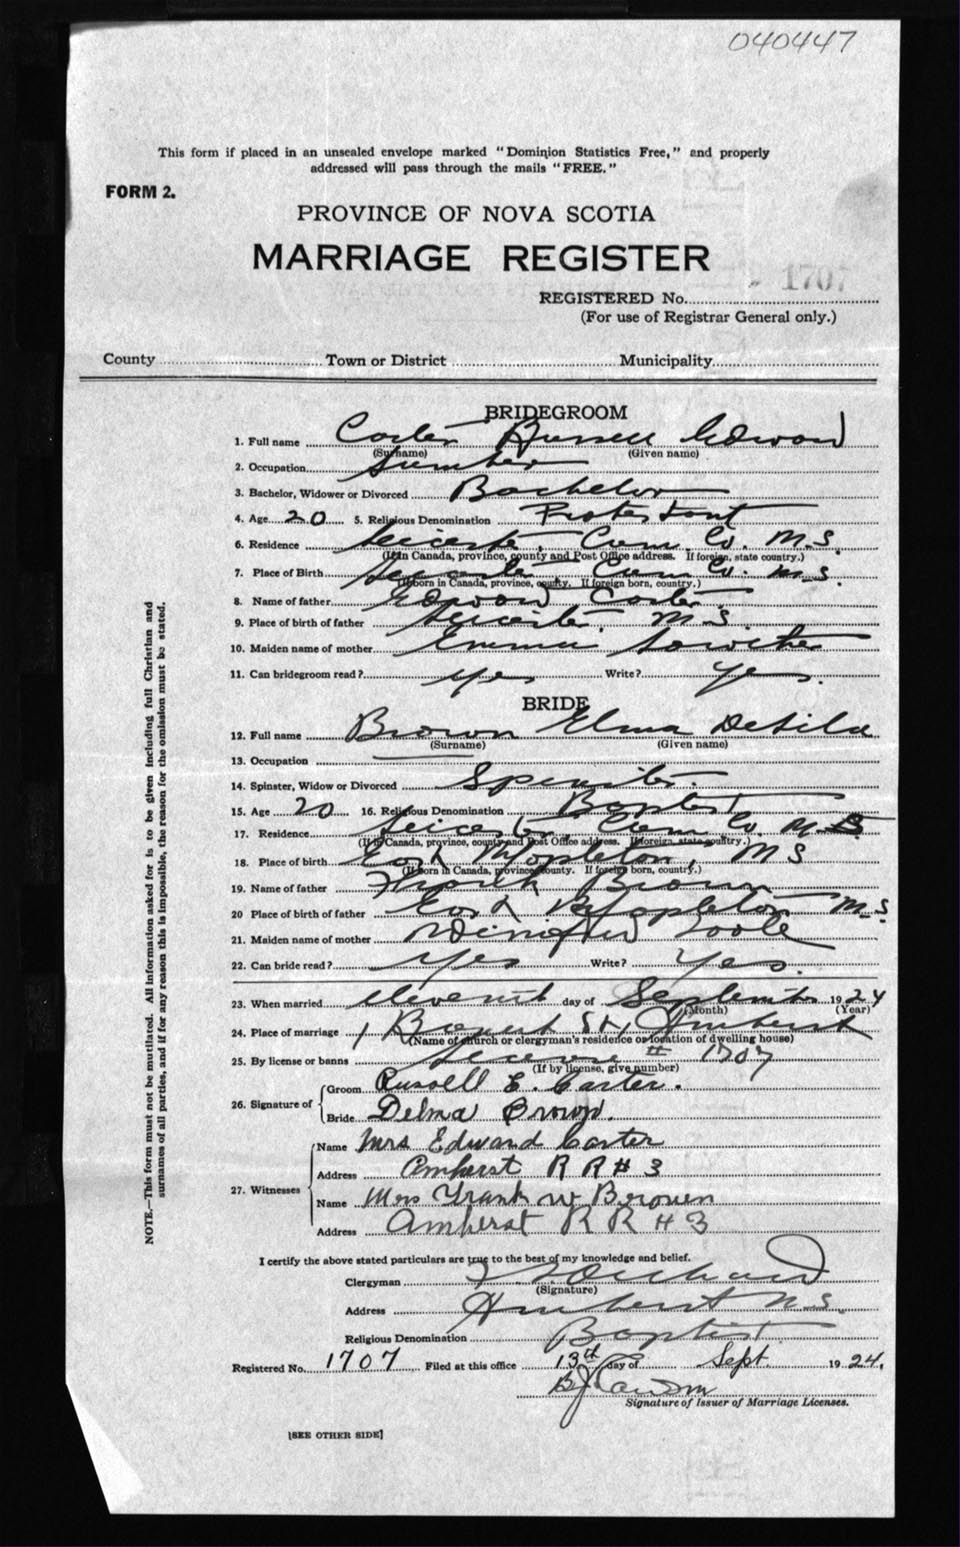 040447
This form if placed in an unsealed envelope marked "Dominion Statistics Free," and properly
addressed will pass through the mails "FREE."
FORM 2.
PROVINCE OF NOVA SCOTIA
MARRIAGE REGISTER
1707
REGISTERED No.
(For use of Registrar General only.)
County Town or District Municipality
BRIDEGROOM
1. Full name Carter Russell Edward
(Surname) (Given name)
2. Occupation
3. Bachelor, Widower or Divorced Bachelor
4. Age 20 5. Religious Denomination Protestant
6. Residence Leicester, Cum Co. N.S.
(If in Canada, province, county and Post Office address. If foreign, state country.)
7. Place of Birth Leicester Cum Co. N.S.
(If born in Canada, province, county. If foreign born, country.)
8. Name of father Edward Carter
9. Place of birth of father Leicester, N.S.
10. Maiden name of mother Emma Lowther
11. Can bridegroom read? Yes Write? Yes.
BRIDE
12. Full name Brown Elma
(Surname) (Given name)
13. Occupation
14. Spinster, Widow or Divorced Spinster.
15. Age 20 16. Religious Denomination Baptist
17. Residence Leicester Cum Co. N.S.
(If in Canada, province, county and Post Office address. If foreign, state country.)
18. Place of birth East Mapleton, N S
(If born in Canada, province, county. If foreign born, country.)
19. Name of father Frank Brown
20 Place of birth of father East Mapleton N.S.
21. Maiden name of mother
22. Can bride read? Yes Write? Yes.
23. When married eleventh day of September 1924
(Month) (Year)
24. Place of marriage St, Amherst
(Name of church or clergyman's residence or location of dwelling house)
25. By license or banns License # 1707
(If by license, give number)
26. Signature of
Groom Russell E. Carter.
Bride Delma Brown.
27. Witnesses
Name Mrs Edward Carter
Address Amherst R R # 3
Name Mrs Frank W Brown
Address Amherst R R # 3
I certify the above stated particulars are true to the best of my knowledge and belief.
Clergyman
(Signature)
Address Amherst N.S.
Religious Denomination Baptist
Registered No. 1707 Filed at this office 13th day of Sept 1924.
Signature of Issuer of Marriage Licenses.
[SEE OTHER SIDE]
NOTE.—This form must not be mutilated. All information asked for is to be given including full Christian and
surnames of all parties, and if for any reason this is impossible, the reason for the omission must be stated.